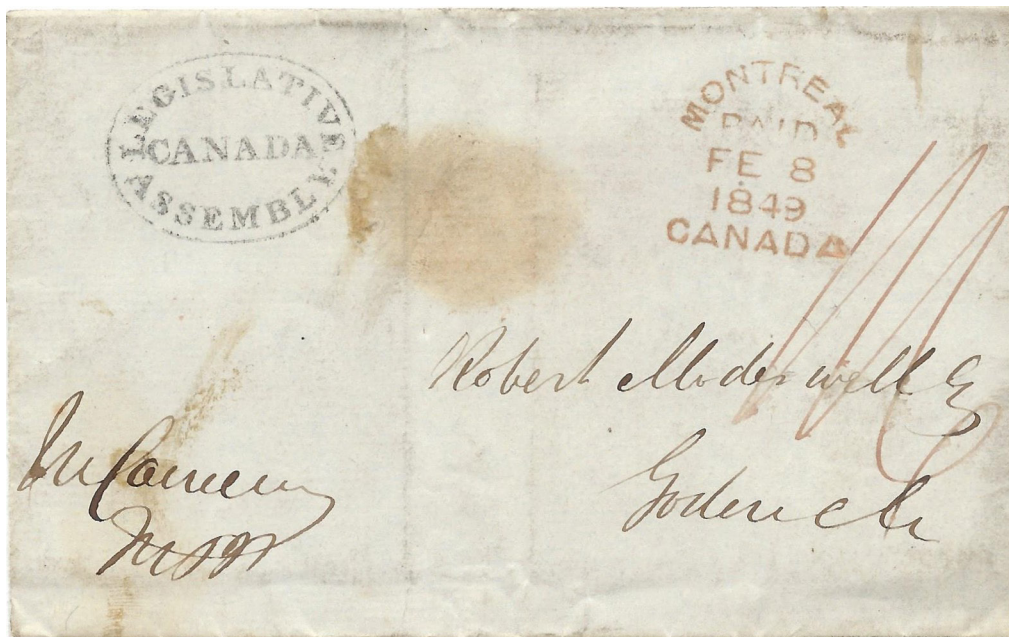 LEGISLATIVE
CANADA
ASSEMBLY.
MONTREAL
PAID
FE 8
1849
CANADA
Robert Moderwell Esq
Goderich
Cameron